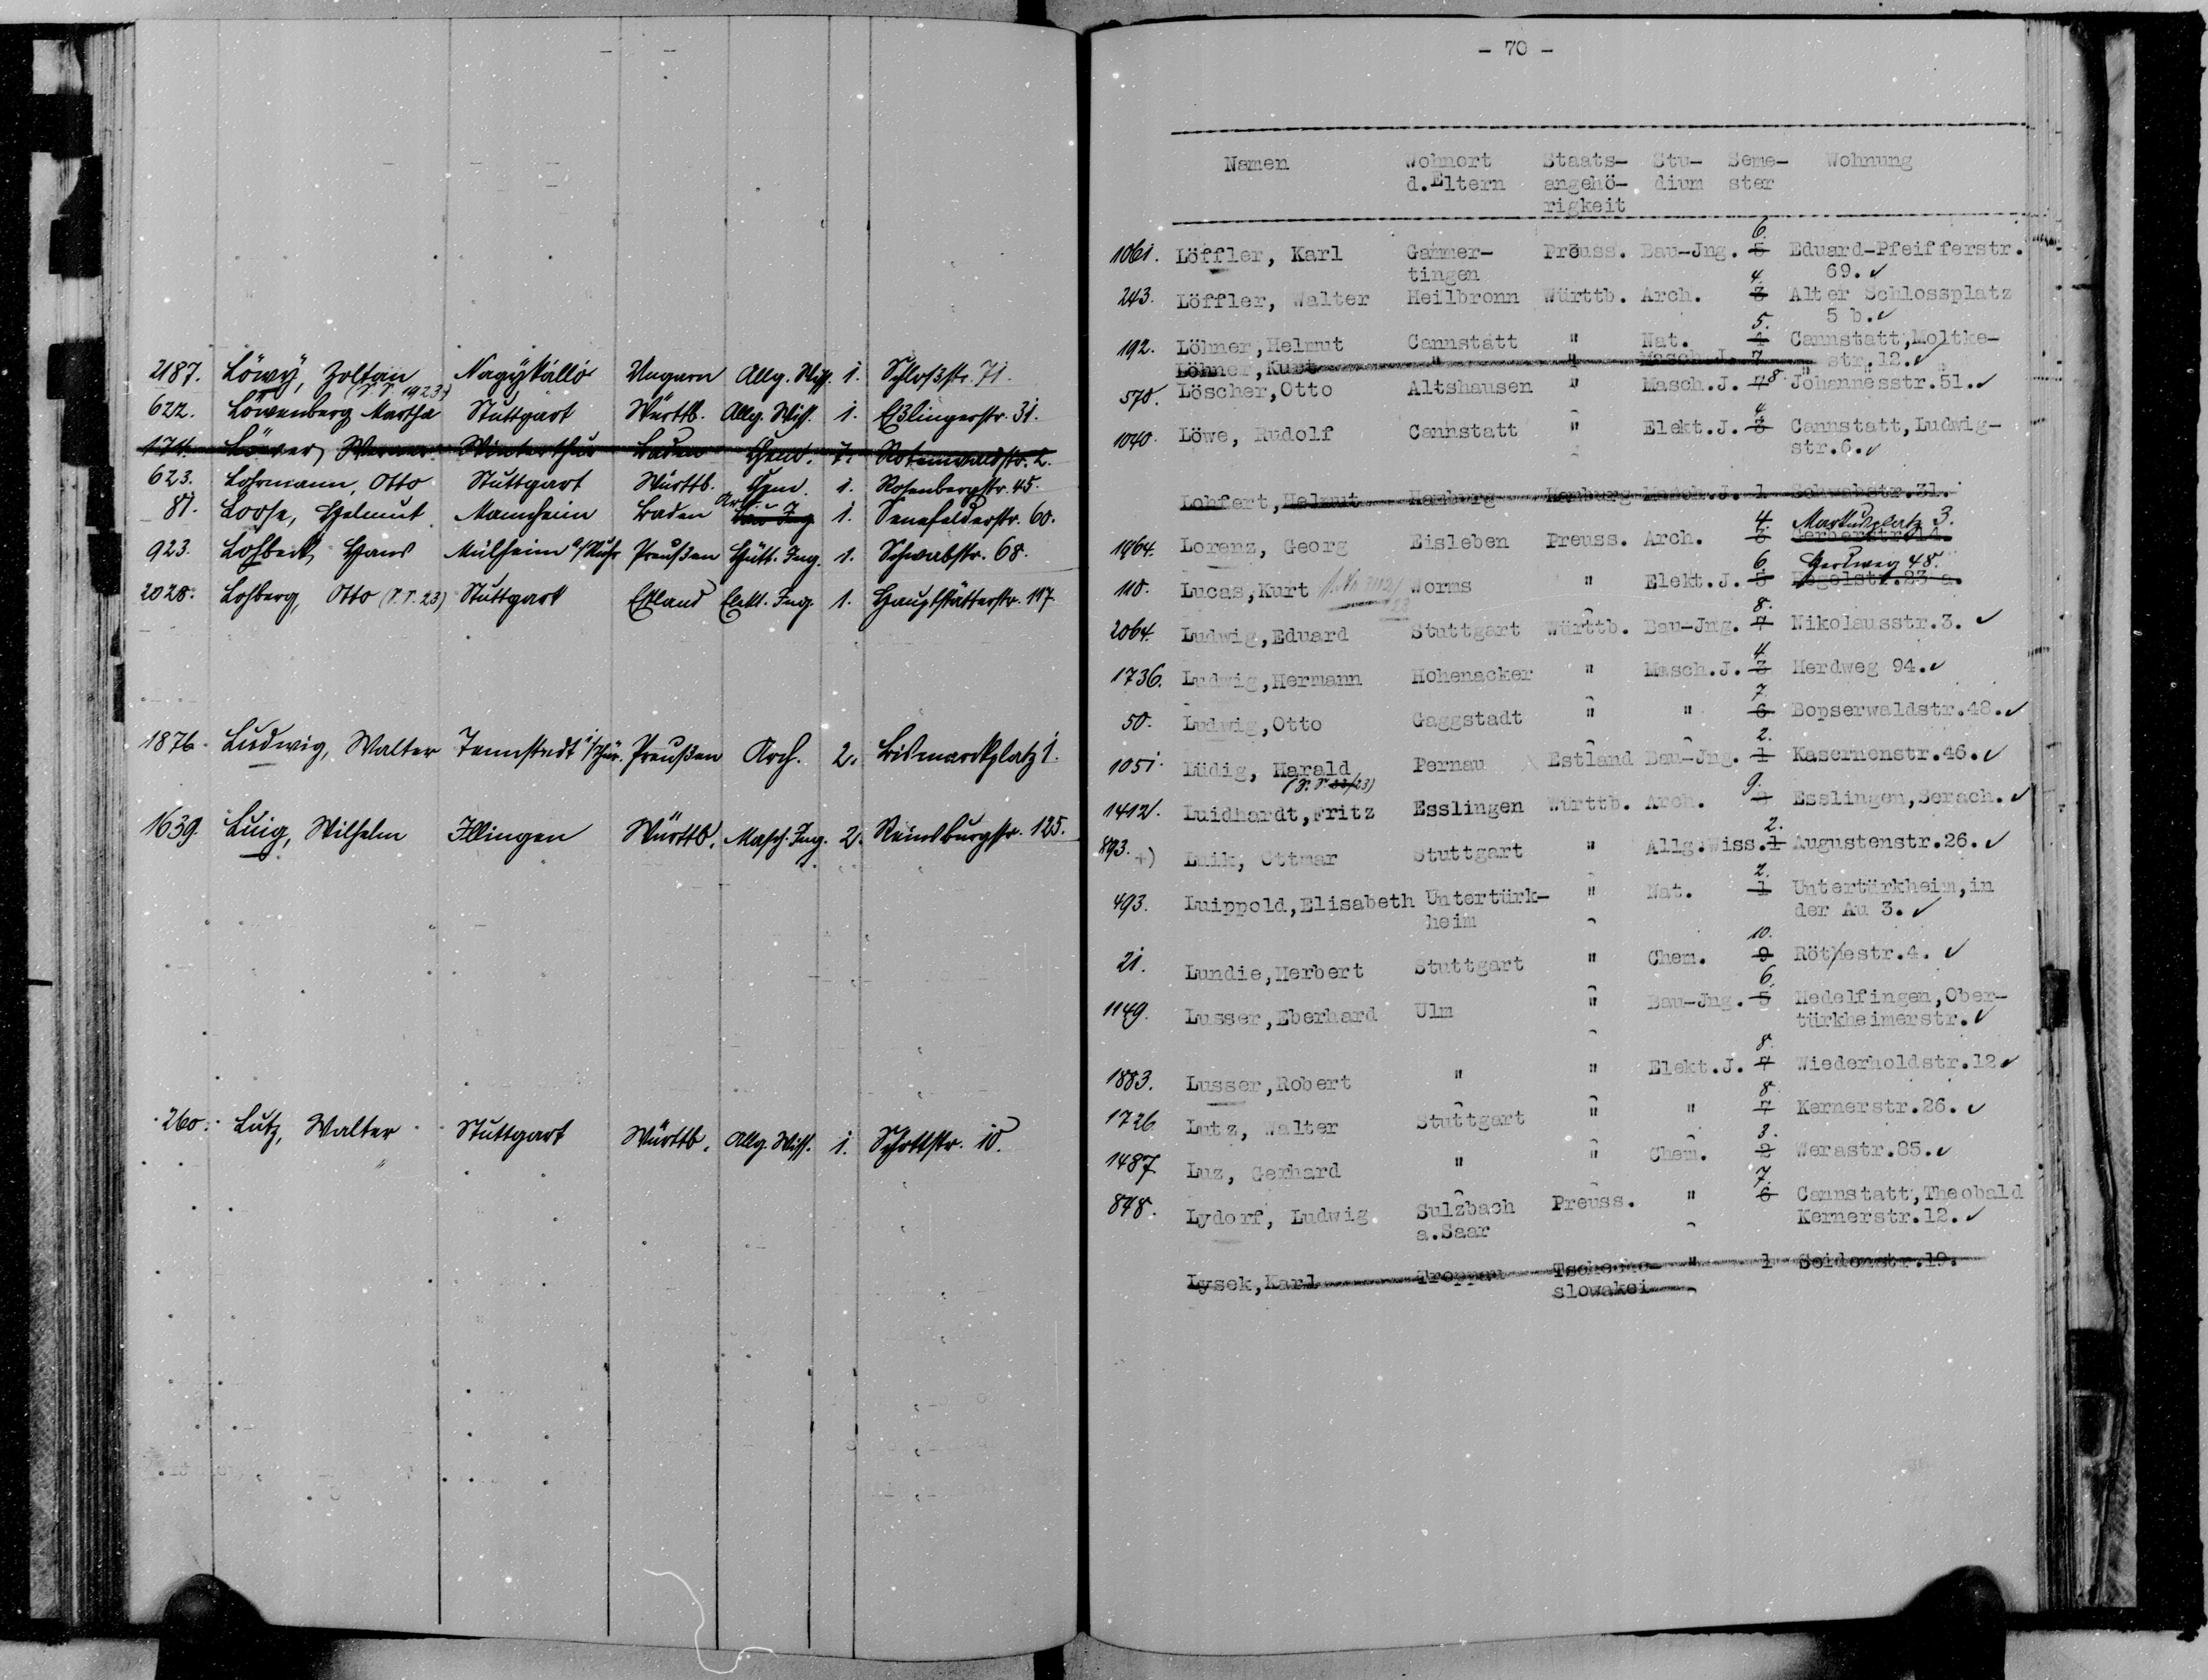 2187. Löwy, Zoltan Nagykálló Ungarn Allg. Wiss. 1. Schloßstr. 71.
(S.S. 1923)
622. Löwenberg Martha Stuttgart Württb. Allg. Wiss. 1. Eßlingerstr. 31.
174. Löwer, Werner Winterthur Baden Chem. 7. Rotenwaldstr. 2.
623. Lohrmann, Otto Stuttgart Württb. Chem. 1. Rosenbergstr. 45.
81. Loose, Helmut Mannheim Baden Arch. Bau-Ing. 1. Senefelderstr. 60.
923. Lohbeck, Hans Mülheim a/Ruhr Preußen Hütt. Ing. 1. Schwabstr. 68.
2028. Lohberg, Otto (S.S. 23) Stuttgart Estland Elekt. Ing. 1. Hauptstätterstr. 117
1876. Ludwig, Walter Tennstedt i/Thür. Preußen Arch. 2. Bismarckplatz 1.
1639. Luig, Wilhelm Illingen Württb. Masch. Ing. 2. Reinsburgstr. 125.
260. Lutz, Walter Stuttgart Württb. Allg. Wiss. 1. Schottstr. 10.
- 70 -
Namen Wohnort Staats- Stu- Seme- Wohnung
d.Eltern angehö- dium ster
rigkeit
6.
1061. Löffler, Karl Gammer- Preuss. Bau-Jng. 5 Eduard-Pfeifferstr.
tingen 69. ✓
4.
243. Löffler, Walter Heilbronn Württb. Arch. 3 Alter Schlossplatz
5 b. ✓
5.
192. Löhner, Helmut Cannstatt " Nat. 4 Cannstatt, Moltke-
Löhner, Kurt " " Masch.J. 7 " str.12. ✓
570. Löscher, Otto Altshausen " Masch.J. 7 8 Johannesstr.51. ✓
4.
1040. Löwe, Rudolf Cannstatt " Elekt.J. 3 Cannstatt, Ludwig-
str.6. ✓
Lohfert, Helmut Hamburg Hamburg Masch.J. 1 Schwabstr.31.
4. Marktplatz 3.
1964. Lorenz, Georg Eisleben Preuss. Arch. 3 Gerberstr.14.
6. Herdweg 48.
110. Lucas, Kurt Worms " Elekt.J. 5 Hegelstr.23 a.
8.
2064. Ludwig, Eduard Stuttgart Württb. Bau-Jng. 7 Nikolausstr.3. ✓
4
1736. Ludwig, Hermann Hohenacker " Masch.J. 3 Herdweg 94. ✓
7.
50. Ludwig, Otto Gaggstadt " " 6 Bopserwaldstr.48. ✓
2.
1051. Lüdig, Harald Pernau x Estland Bau-Jng. 1 Kasernenstr.46. ✓
9.
1412. Luidhardt, Fritz Esslingen Württb. Arch. 8 Esslingen, Serach. ✓
2.
893. +) Luik, Ottmar Stuttgart " Allg.Wiss. 1 Augustenstr.26. ✓
2.
493. Luippold, Elisabeth Untertürk- " Nat. 1 Untertürkheim, in
heim der Au 3. ✓
10.
21. Lundie, Herbert Stuttgart " Chem. 9 Röthestr.4. ✓
6.
1149. Lusser, Eberhard Ulm " Bau-Jng. 5 Hedelfingen, Ober-
türkheimerstr. ✓
8.
1883. Lusser, Robert " " Elekt.J. 7 Wiederholdstr.12 ✓
8.
1726 Lutz, Walter Stuttgart " " 7 Kernerstr.26. ✓
3.
1487 Luz, Gerhard " " Chem. 2 Werastr.85. ✓
7.
848. Lydorf, Ludwig Sulzbach Preuss. " 6 Cannstatt, Theobald
a.Saar Kernerstr.12. ✓
Lysek, Karl Troppau Tschecho- " 1 Seidenstr.19.
slowakei